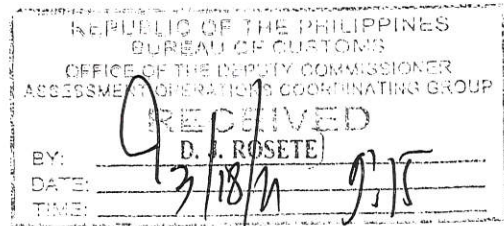 REPUBLIC OF THE PHILIPPINES
BUREAU OF CUSTOMS
OFFICE OF THE DEPUTY COMMISSIONER
ASSESSMENT OPERATIONS COORDINATING GROUP
RECEIVED
BY: D. J. ROSETE
DATE: 3/18/21
TIME: 9:15